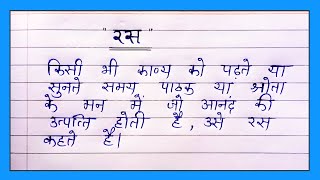 "रस"
किसी भी काव्य को पढ़ते या
सुनते समय पाठक या श्रोता
के मन में जो आनंद की
उत्पत्ति होती है, उसे रस
कहते हैं।